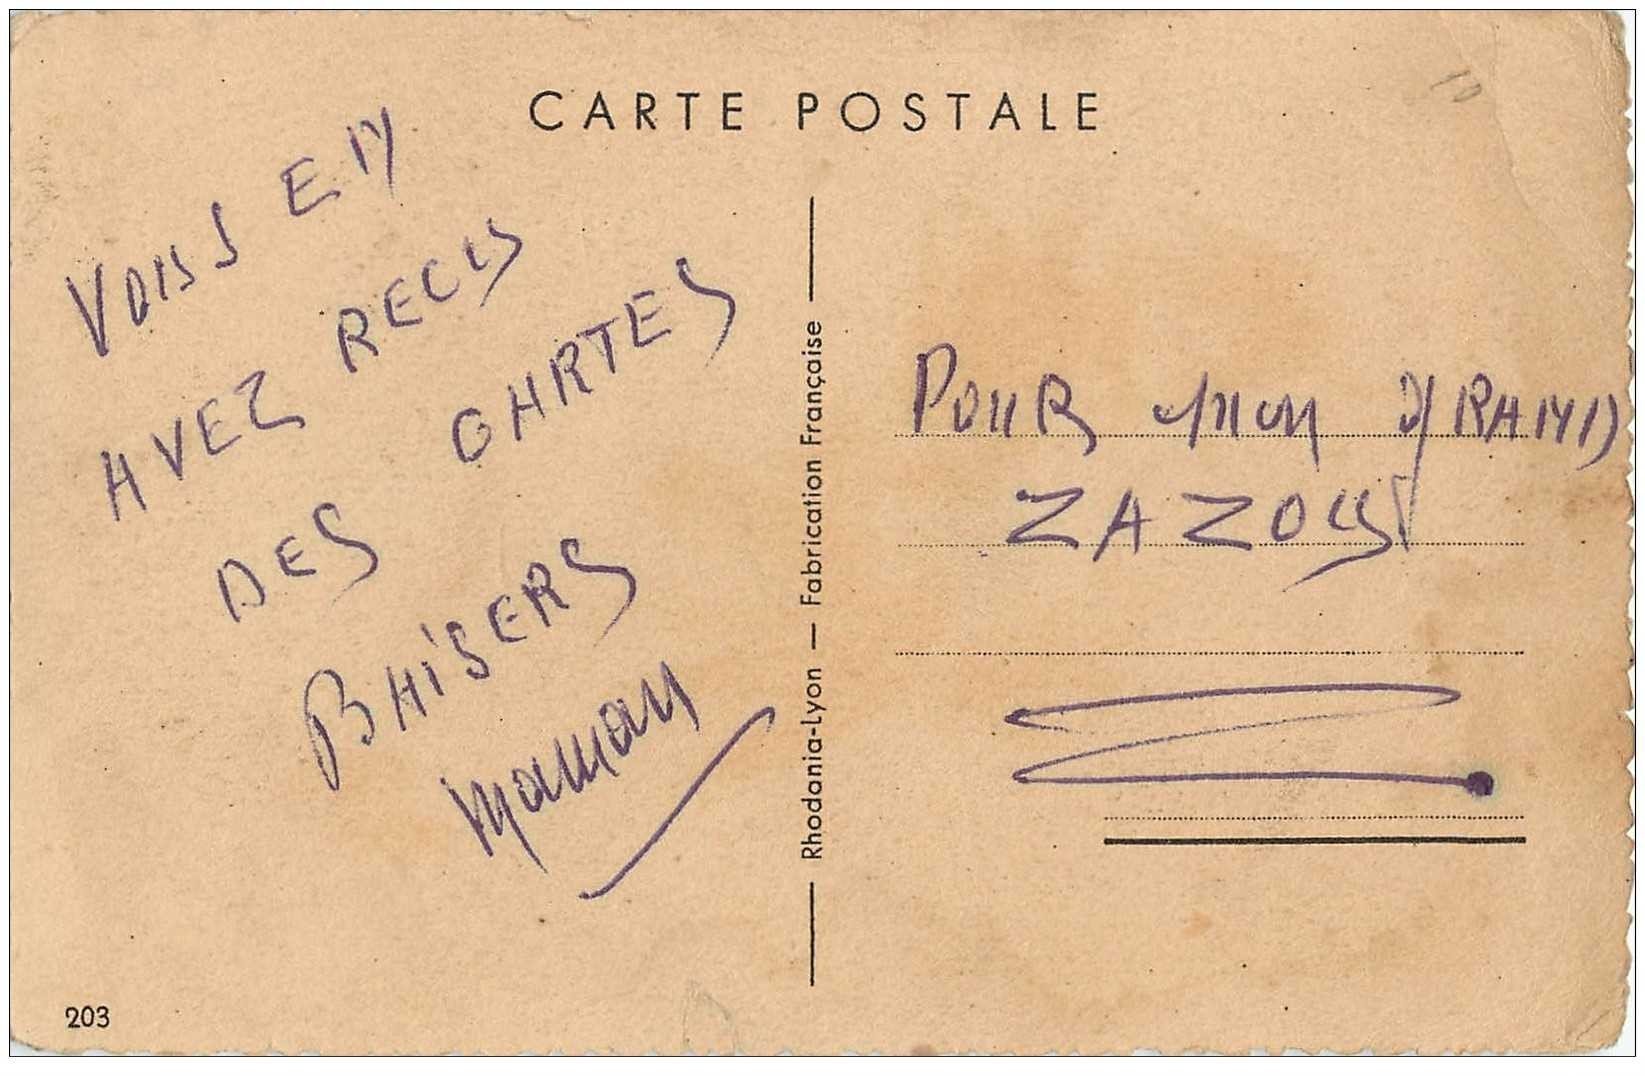 CARTE POSTALE
VOUS EN
AVEZ RECUS
DES CARTES
BAISERS
Maman
Rhodania-Lyon — Fabrication Française
POUR mon GRAND
ZAZOUS
203
10